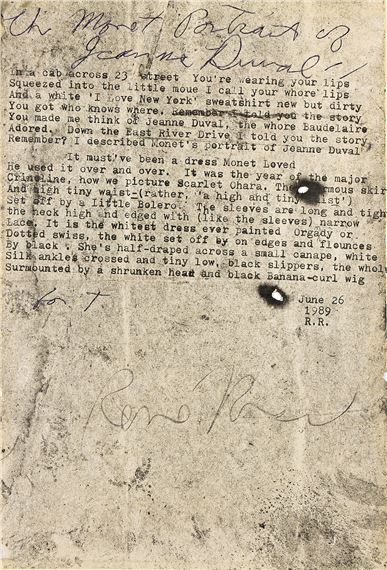 The Monet Portrait of
Jeanne Duval
In a cab across 23 street  You're wearing your lips
Squeezed into the little moue I call your whore lips
And a white 'I Love New York' sweatshirt new but dirty
You got who knows where. Remember I told you the story
You made me think of Jeanne Duval, the whore Baudelaire
Adored.  Down the East River Drive I told you the story
Remember? I described Monet's portrait of Jeanne Duval
It must've been a dress Monet Loved
He used it over and over.  It was the year of the major
Crinoline, how we picture Scarlet Ohara. The skir
And high tiny waist-(rather, 'a high and tiny waist')
Set off by a Little Bolero.  The sleeves are long and tigh
the neck high and edged with (like the sleeves) narrow
Lace. It is the whitest dress ever painted  Orgady or
Dotted swiss, the white set off by on edges and flounces
By black . She's half-draped across a small canape, white
Silk ankles crossed and tiny low, black slippers, the whol
Surmounted by a shrunken head and black Banana-curl wig
for T
June 26
1989
R.R.
Rene Ricard